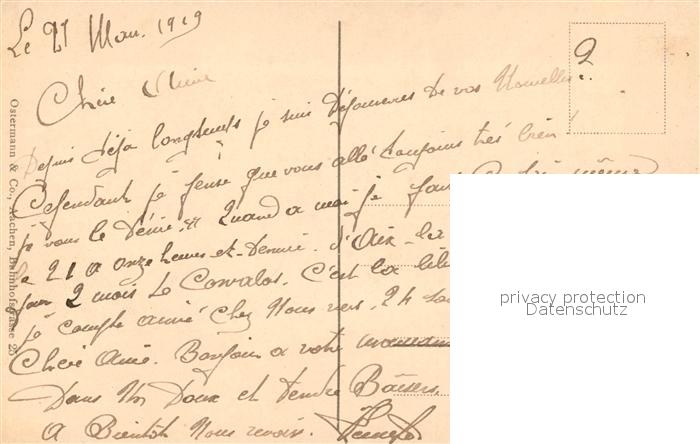 Le 21 Mars. 1919
2
Chère Amie
Depuis déjà longtemps je suis Dépourvus De vos Nouvelles.
Cependant je pense que vous allé toujours très bien!
je vous le Désire. Quand a moi je
le 21 a onze heures et Demie. d'Aix-la
pour 2 mois Le Convalos. C'est la
je compte arrivé chez Nous vers. 24
Chère Amie. Bonjour a votre maman
Dans Un Doux et tendre Baisers.
A Bientôt Nous revoir.
Ostermann & Co., Aachen, Bahnhofstrasse 25
privacy protection
Datenschutz